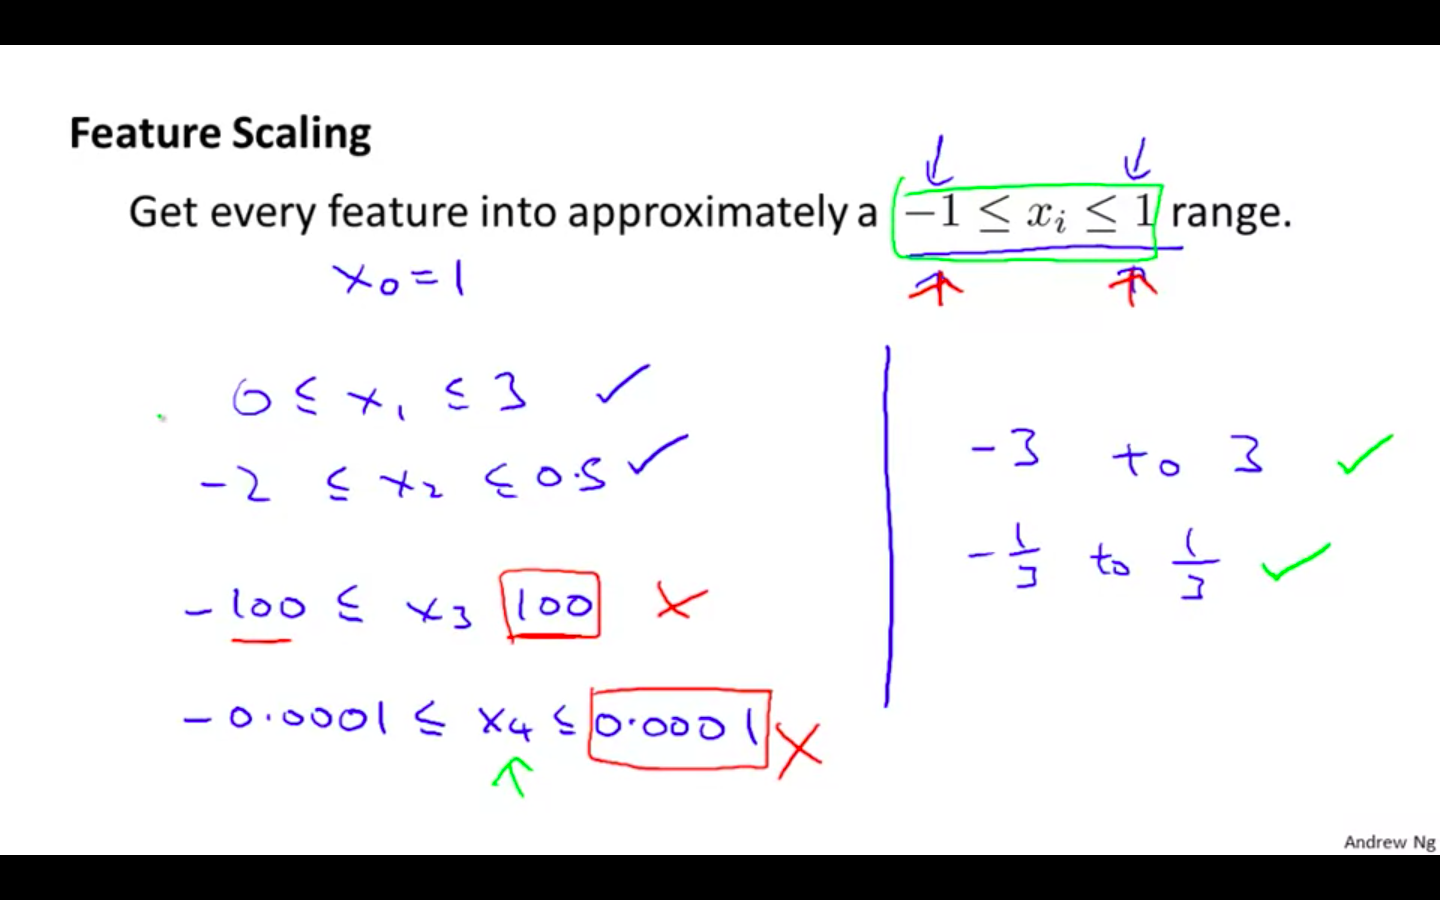 Feature Scaling
Get every feature into approximately a −1 ≤ xᵢ ≤ 1 range.
x₀ = 1
0 ≤ x₁ ≤ 3 ✓
-2 ≤ x₂ ≤ 0.5 ✓
-3 to 3 ✓
-1/3 to 1/3 ✓
-100 ≤ x₃ 100 ✗
-0.0001 ≤ x₄ ≤ 0.0001 ✗
Andrew Ng